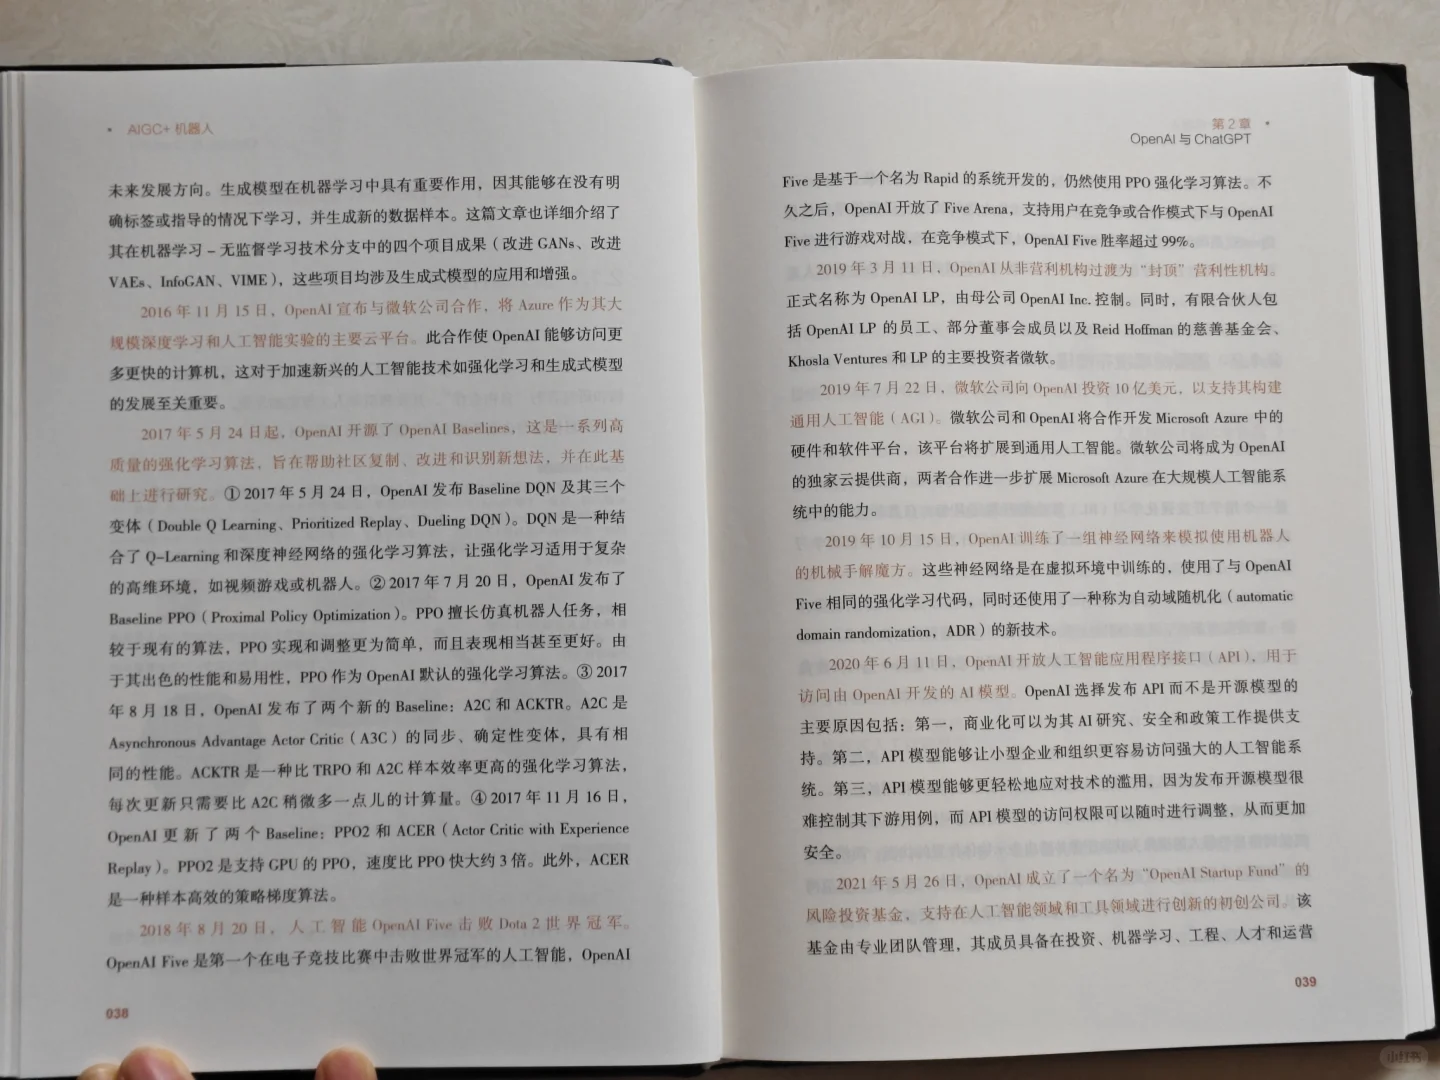 AIGC+ 机器人
未来发展方向。生成模型在机器学习中具有重要作用，因其能够在没有明
确标签或指导的情况下学习，并生成新的数据样本。这篇文章也详细介绍了
其在机器学习 – 无监督学习技术分支中的四个项目成果（改进 GANs、改进
VAEs、InfoGAN、VIME），这些项目均涉及生成式模型的应用和增强。
2016 年 11 月 15 日，OpenAI 宣布与微软公司合作，将 Azure 作为其大
规模深度学习和人工智能实验的主要云平台。此合作使 OpenAI 能够访问更
多更快的计算机，这对于加速新兴的人工智能技术如强化学习和生成式模型
的发展至关重要。
2017 年 5 月 24 日起，OpenAI 开源了 OpenAI Baselines，这是一系列高
质量的强化学习算法，旨在帮助社区复制、改进和识别新想法，并在此基
础上进行研究。① 2017 年 5 月 24 日，OpenAI 发布 Baseline DQN 及其三个
变体（Double Q Learning、Prioritized Replay、Dueling DQN）。DQN 是一种结
合了 Q–Learning 和深度神经网络的强化学习算法，让强化学习适用于复杂
的高维环境，如视频游戏或机器人。② 2017 年 7 月 20 日，OpenAI 发布了
Baseline PPO（Proximal Policy Optimization）。PPO 擅长仿真机器人任务，相
较于现有的算法，PPO 实现和调整更为简单，而且表现相当甚至更好。由
于其出色的性能和易用性，PPO 作为 OpenAI 默认的强化学习算法。③ 2017
年 8 月 18 日，OpenAI 发布了两个新的 Baseline：A2C 和 ACKTR。A2C 是
Asynchronous Advantage Actor Critic（A3C）的同步、确定性变体，具有相
同的性能。ACKTR 是一种比 TRPO 和 A2C 样本效率更高的强化学习算法，
每次更新只需要比 A2C 稍微多一点儿的计算量。④ 2017 年 11 月 16 日，
OpenAI 更新了两个 Baseline：PPO2 和 ACER（Actor Critic with Experience
Replay）。PPO2 是支持 GPU 的 PPO，速度比 PPO 快大约 3 倍。此外，ACER
是一种样本高效的策略梯度算法。
2018 年 8 月 20 日，人工智能 OpenAI Five 击败 Dota 2 世界冠军。
OpenAI Five 是第一个在电子竞技比赛中击败世界冠军的人工智能，OpenAI
038
第 2 章
OpenAI 与 ChatGPT
Five 是基于一个名为 Rapid 的系统开发的，仍然使用 PPO 强化学习算法。不
久之后，OpenAI 开放了 Five Arena，支持用户在竞争或合作模式下与 OpenAI
Five 进行游戏对战，在竞争模式下，OpenAI Five 胜率超过 99%。
2019 年 3 月 11 日，OpenAI 从非营利机构过渡为“封顶”营利性机构。
正式名称为 OpenAI LP，由母公司 OpenAI Inc. 控制。同时，有限合伙人包
括 OpenAI LP 的员工、部分董事会成员以及 Reid Hoffman 的慈善基金会、
Khosla Ventures 和 LP 的主要投资者微软。
2019 年 7 月 22 日，微软公司向 OpenAI 投资 10 亿美元，以支持其构建
通用人工智能（AGI）。微软公司和 OpenAI 将合作开发 Microsoft Azure 中的
硬件和软件平台，该平台将扩展到通用人工智能。微软公司将成为 OpenAI
的独家云提供商，两者合作进一步扩展 Microsoft Azure 在大规模人工智能系
统中的能力。
2019 年 10 月 15 日，OpenAI 训练了一组神经网络来模拟使用机器人
的机械手解魔方。这些神经网络是在虚拟环境中训练的，使用了与 OpenAI
Five 相同的强化学习代码，同时还使用了一种称为自动域随机化（automatic
domain randomization，ADR）的新技术。
2020 年 6 月 11 日，OpenAI 开放人工智能应用程序接口（API），用于
访问由 OpenAI 开发的 AI 模型。OpenAI 选择发布 API 而不是开源模型的
主要原因包括：第一，商业化可以为其 AI 研究、安全和政策工作提供支
持。第二，API 模型能够让小型企业和组织更容易访问强大的人工智能系
统。第三，API 模型能够更轻松地应对技术的滥用，因为发布开源模型很
难控制其下游用例，而 API 模型的访问权限可以随时进行调整，从而更加
安全。
2021 年 5 月 26 日，OpenAI 成立了一个名为“OpenAI Startup Fund”的
风险投资基金，支持在人工智能领域和工具领域进行创新的初创公司。该
基金由专业团队管理，其成员具备在投资、机器学习、工程、人才和运营
039
小红书